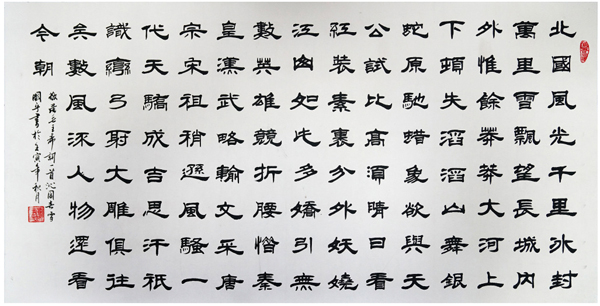 北國風光千里冰封
萬里雪飄望長城內
外惟餘莽莽大河上
下頓失滔滔山舞銀
蛇原馳蜡象欲與天
公試比高須晴日看
紅裝素裹分外妖嬈
江山如此多嬌引無
數英雄競折腰惜秦
皇漢武略輸文采唐
宗宋祖稍遜風騷一
代天驕成吉思汗祇
識彎弓射大雕俱往
矣數風流人物還看
今朝
敬錄毛主席詞一首沁園春雪
國書於壬寅年秋月